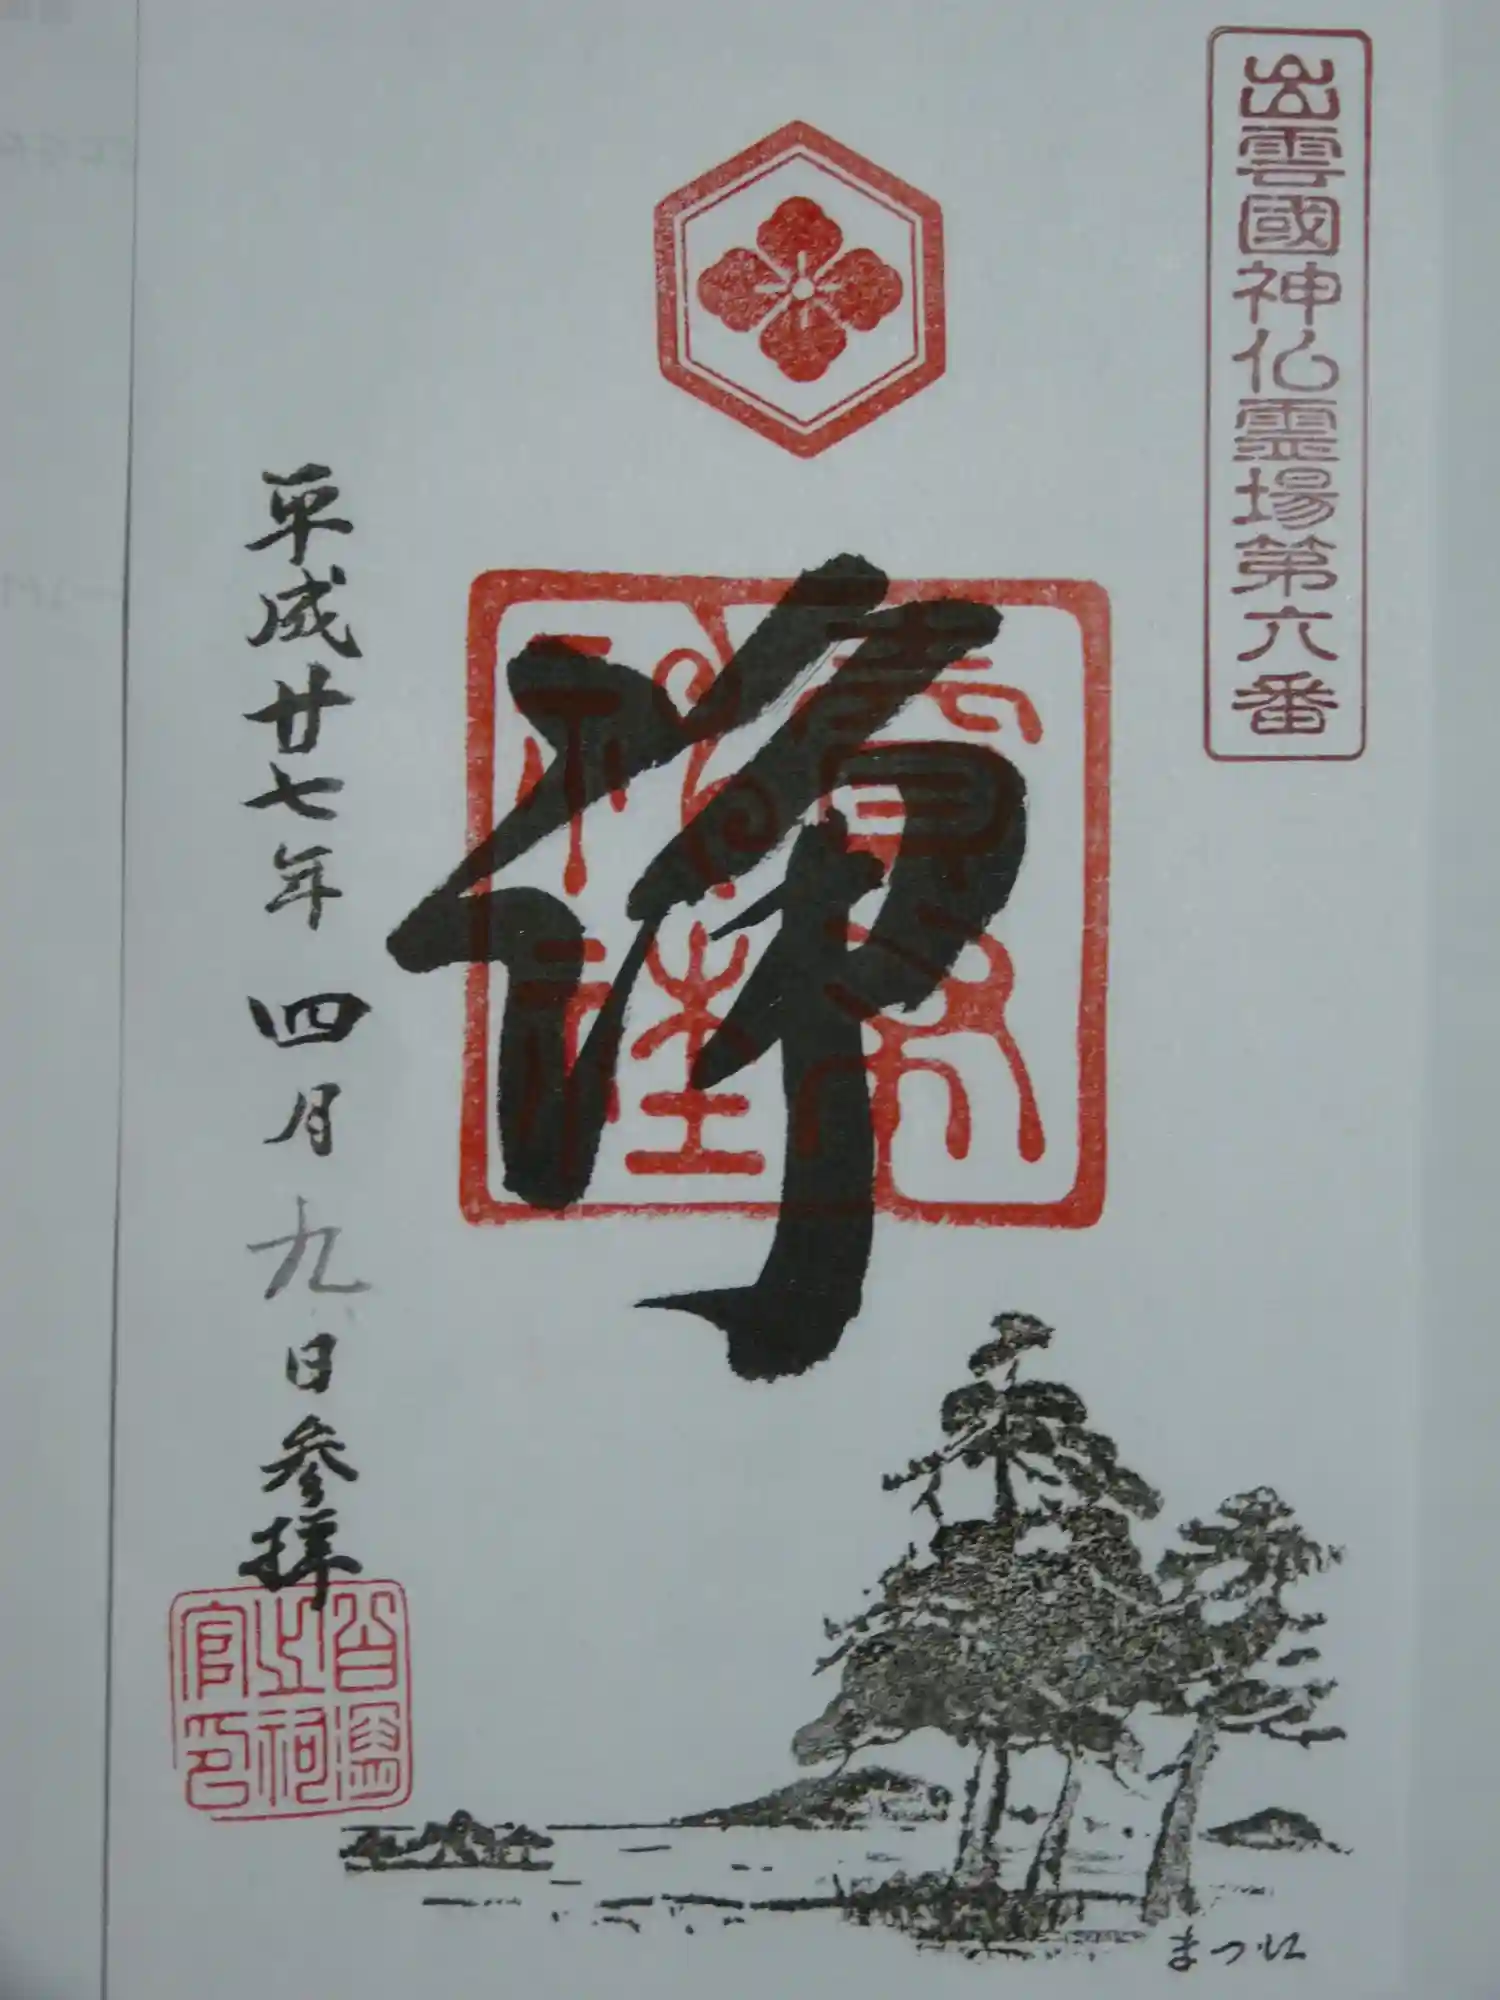 出雲國神仏霊場第六番
賣布
神社
平成廿七年四月九日参拝
まつ江